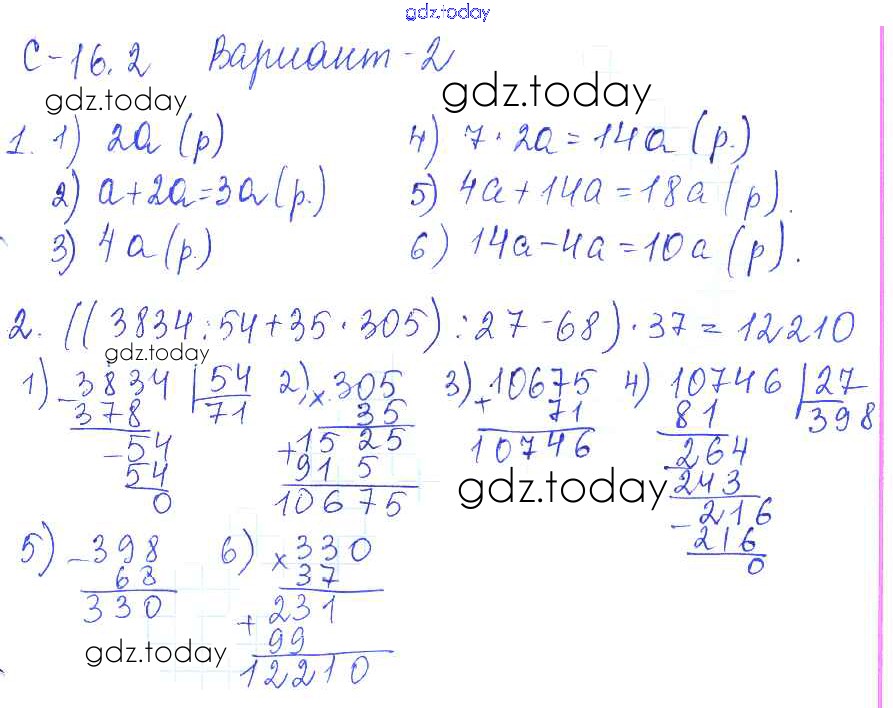 gdz.today
С-16.2 Вариант-2
gdz.today gdz.today
1. 1) 2а (р) 4) 7 · 2а = 14а (р.)
2) а + 2а = 3а (р.) 5) 4а + 14а = 18а (р).
3) 4а (р.) 6) 14а - 4а = 10а (р).
2. ((3834 : 54 + 35 · 305) : 27 - 68) · 37 = 12210
gdz.today
1) 3834 54 2) × 305 3) 10675 4) 10746 27
- 378 71 35 + 71 81 398
- 54 + 15 25 10746 - 264
54 91 5 243
0 10675 - 216
gdz.today
216
0
5) - 398 6) × 330
68 37
330 + 231
99
gdz.today
12210